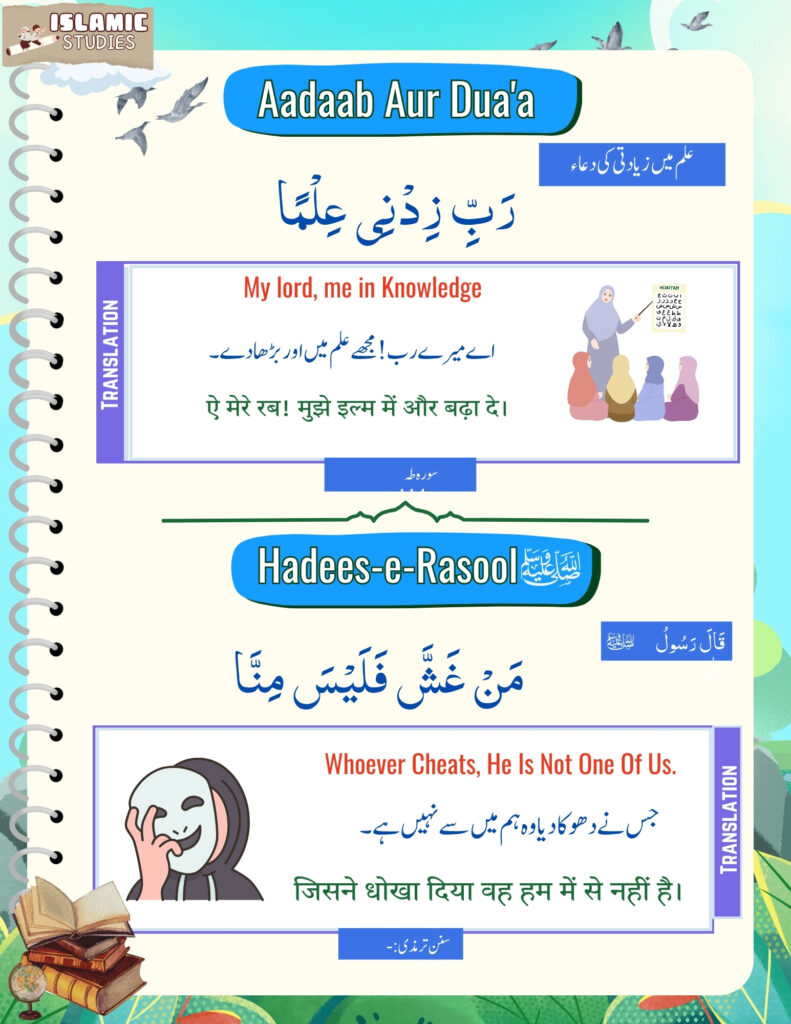 ISLAMIC
STUDIES
Aadaab Aur Dua'a
علم میں زیادتی کی دعاء
رَبِّ زِدْنِی عِلْمًا
TRANSLATION
My lord, me in Knowledge
اے میرے رب! مجھے علم میں اور بڑھا دے۔
ऐ मेरे रब! मुझे इल्म में और बढ़ा दे।
HIJAIYAH
سورہ طہ
Hadees-e-Rasool ﷺ
قَالَ رَسُولُ ﷺ
مَنْ غَشَّ فَلَيْسَ مِنَّا
Whoever Cheats, He Is Not One Of Us.
جس نے دھوکا دیا وہ ہم میں سے نہیں ہے۔
जिसने धोखा दिया वह हम में से नहीं है।
TRANSLATION
سنن ترمذی:-